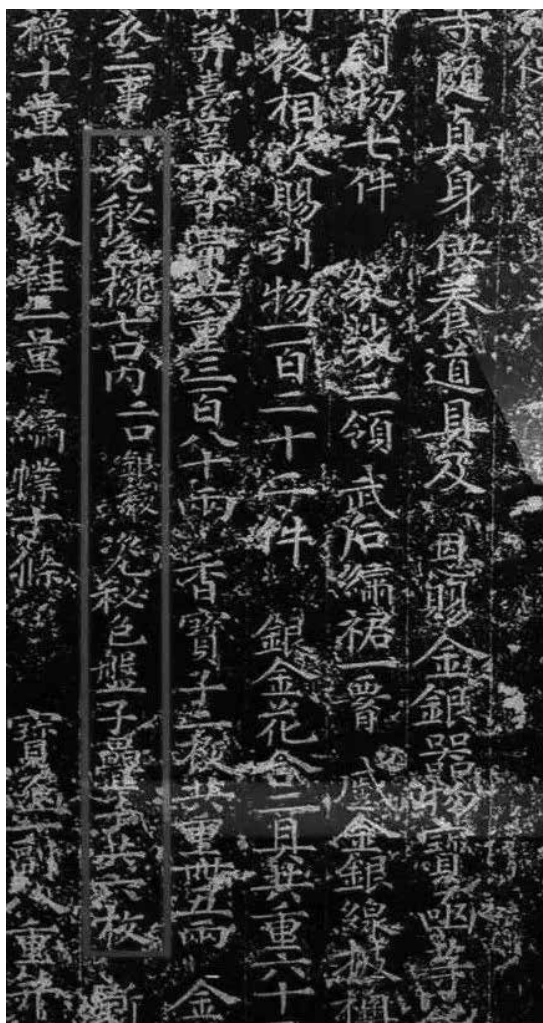 寺随真身供養道具及 恩賜金銀器物寶函等
到物七件 袈裟三領 武后繡裙一腰 蹙金銀線披襖
内後相次賜到物一百二十二件 銀金花合二具共重六十
并臺蓋朱帶共重三百八十兩 香寶子二枚共重卌五兩 金
衣二事 瓷秘色椀七口内二口銀稜 瓷秘色盤子疊子共六枚 新
十量 紫靸鞋二量 繡幞十條 寶函一副八重并